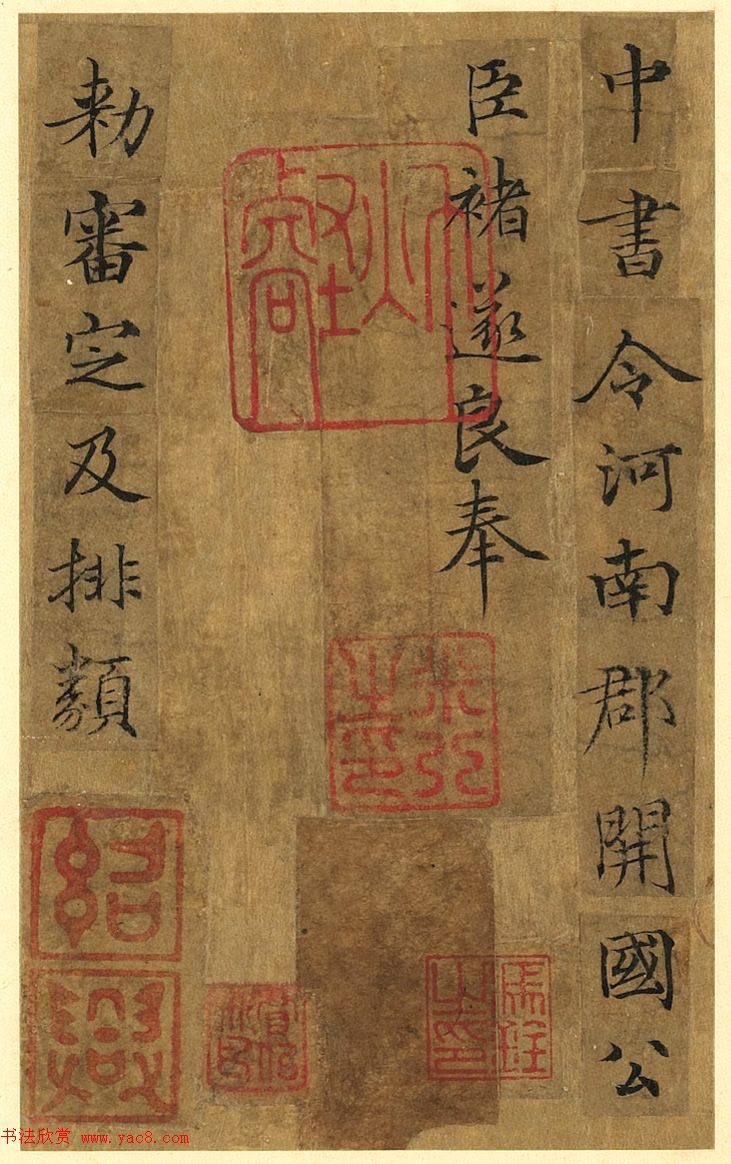 中書令河南郡開國公
臣褚遂良奉
勑審定及排類
秋壑
紹
興
书法欣赏 www.yac8.com